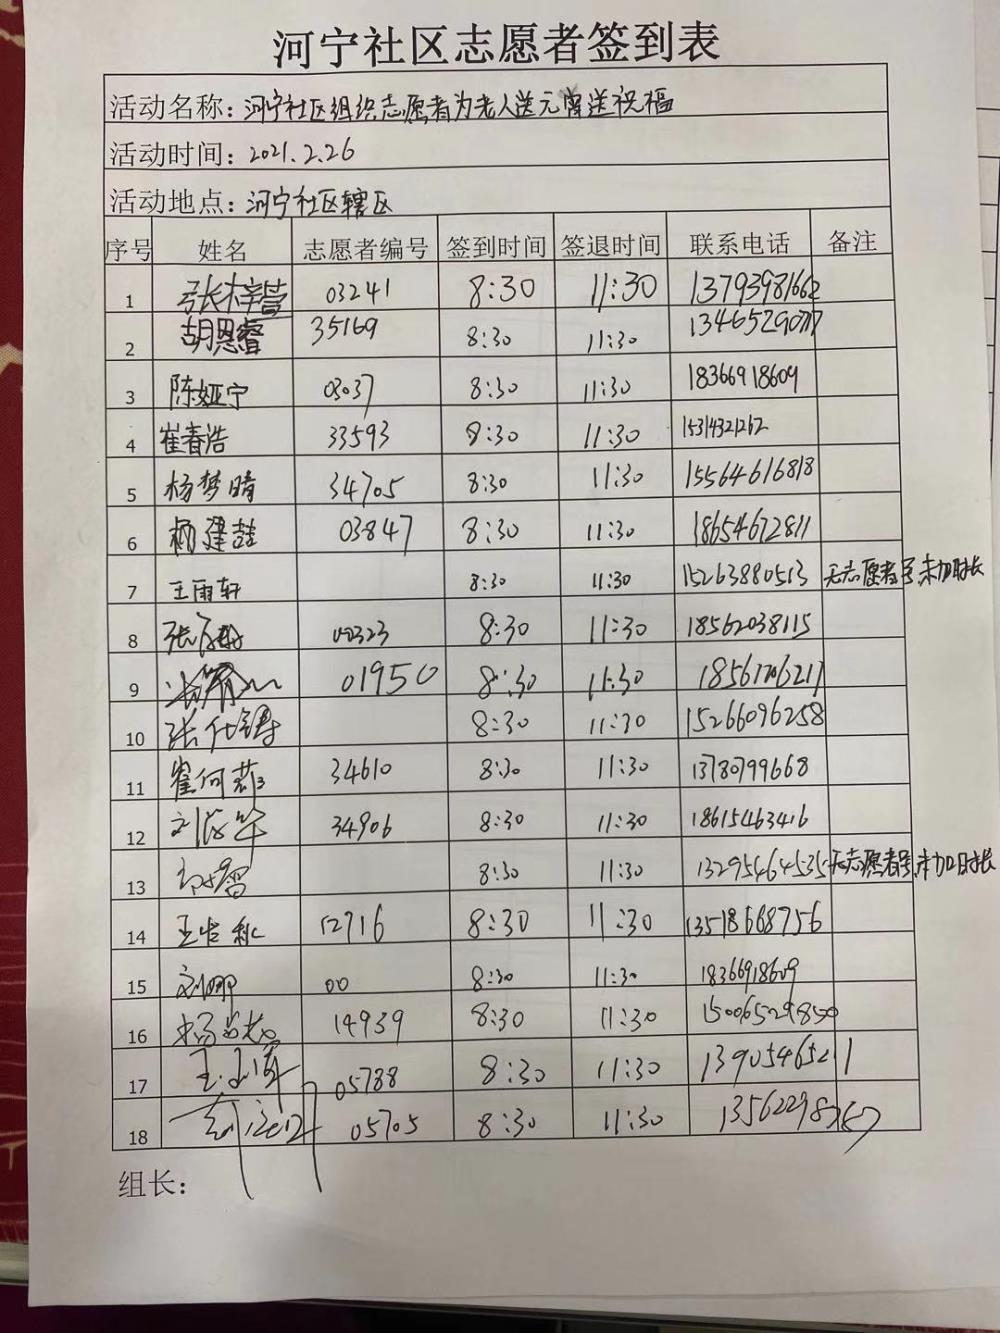 河宁社区志愿者签到表
活动名称：河宁社区组织志愿者为老人送元宵送祝福
活动时间：2021.2.26
活动地点：河宁社区辖区
序号 姓名 志愿者编号 签到时间 签退时间 联系电话 备注
1 张梓萱 03241 8:30 11:30 13793981662
2 胡恩睿 35169 8:30 11:30
3 陈娅宁 03037 8:30 11:30 18366918609
4 崔春浩 33593 8:30 11:30 15314321262
5 杨梦晴 34705 8:30 11:30 15564616818
6 建喆 03847 8:30 11:30 18654672811
7 王雨轩 8:30 11:30 15263880513 无志愿者号,未加时长
8 张 00323 8:30 11:30 18562038115
9 01950 8:30 11:30
10 张仕 8:30 11:30 15266096258
11 崔何 34610 8:30 11:30 13780799668
12 刘 34906 8:30 11:30 18615463416
13 8:30 11:30 13295464535 无志愿者号,未加时长
14 王 12716 8:30 11:30 13518668756
15 刘娜 00 8:30 11:30 18366918609
16 杨 14939 8:30 11:30 15006529850
17 王 05788 8:30 11:30 13905465211
18 05705 8:30 11:30
组长：